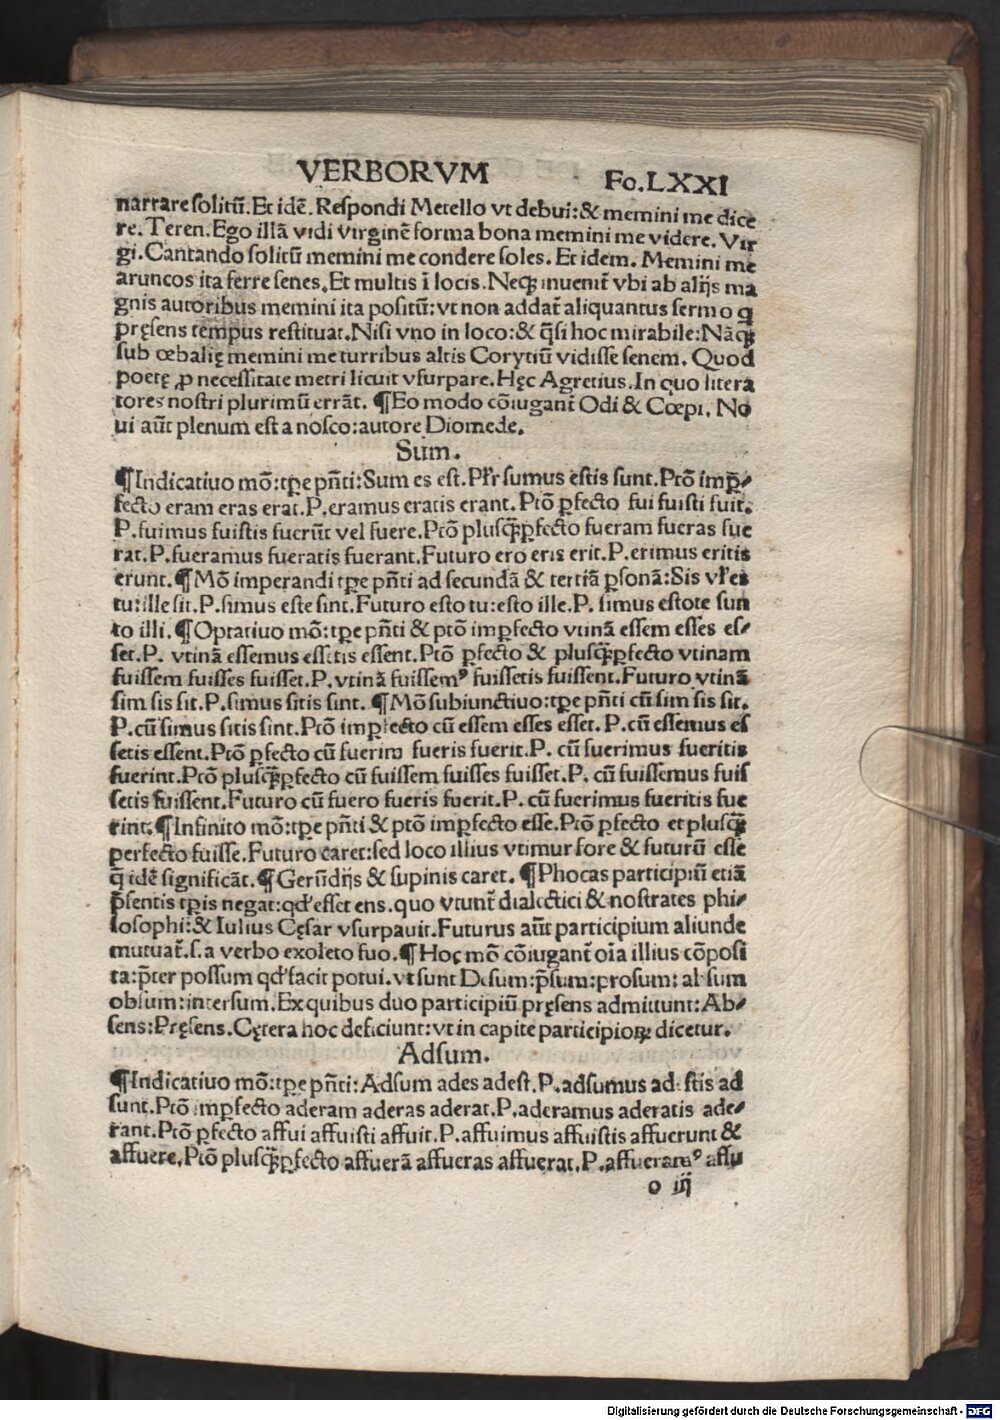 VERBORVM Fo.LXXI
narrare solitū. Et idē. Respondi Metello vt debui: & memini me dice
re. Teren. Ego illā vidi virginē forma bona memini me videre. Vir
gi. Cantando solitū memini me condere soles. Et idem. Memini me
aruncos ita ferre senes. Et multis ī locis. Neqꝫ inuenit̄ vbi ab alijs ma
gnis autoribus memini ita positū: vt non addat̄ aliquantus sermo q
pręsens tempus restituat. Nisi vno in loco: & q̄si hoc mirabile: Nāqꝫ
sub œbalię memini me turribus altis Corytiū vidisse senem. Quod
poetę ꝓ necessitate metri licuit vsurpare. Hęc Agretius. In quo litera
tores nostri plurimū errāt. ¶ Eo modo cōiugant̄ Odi & Cœpi. No
ui aūt plenum est a nosco: autore Diomede.
Sum.
¶ Indicatiuo mō: tꝑe pn̄ti: Sum es est. Pl̄r sumus estis sunt. Ptō imꝑ⸗
fecto eram eras erat. P. eramus eratis erant. Ptō ꝑfecto fui fuisti fuit.
P. fuimus fuistis fuerūt vel fuere. Ptō plusqꝫ̄ꝑfecto fueram fueras fue
rat. P. fueramus fueratis fuerant. Futuro ero eris erit. P. erimus eritis
erunt. ¶ Mō imperandi tꝑe pn̄ti ad secundā & tertiā ꝑsonā: Sis vl̄ es
tu: ille sit. P. simus este sint. Futuro esto tu: esto ille. P. simus estote sun
to illi. ¶ Optatiuo mō: tꝑe pn̄ti & ptō imꝑfecto vtinā essem esses es⸗
set. P. vtinā essemus essetis essent. Ptō ꝑfecto & plusqꝫ̄ꝑfecto vtinam
fuissem fuisses fuisset. P. vtinā fuissemꝰ fuissetis fuissent. Futuro vtinā
sim sis sit. P. simus sitis sint. ¶ Mō subiunctiuo: tꝑe pn̄ti cū sim sis sit.
P. cū simus sitis sint. Ptō imꝑfecto cū essem esses esset. P. cū essemus es
setis essent. Ptō ꝑfecto cū fuerim fueris fuerit. P. cū fuerimus fueritis
fuerint. Ptō plusqꝫ̄ꝑfecto cū fuissem fuisses fuisset. P. cū fuissemus fuis
setis fuissent. Futuro cū fuero fueris fuerit. P. cū fuerimus fueritis fue
rint. ¶ Infinito mō: tꝑe pn̄ti & ptō imꝑfecto esse. Ptō ꝑfecto et plusqꝫ̄
perfecto fuisse. Futuro caret: sed loco illius vtimur fore & futurū esse
q̄ idē significāt. ¶ Gerūdijs & supinis caret. ¶ Phocas participiū etiā
p̄sentis tꝑis negat: qd̄ esset ens. quo vtunt̄ dialectici & nostrates phi⸗
losophi: & Iulius Cęsar vsurpauit. Futurus aūt participium aliunde
mutuat̄. s. a verbo exoleto fuo. ¶ Hoc mō cōiugant̄ oīa illius cōposi
ta: p̄ter possum qd̄ facit potui. vt sunt Desum: p̄sum: prosum: absum
obsum: intersum. Ex quibus duo participiū pręsens admittunt: Ab⸗
sens: Pręsens. Cętera hoc deficiunt: vt in capite participioꝝ dicetur.
Adsum.
¶ Indicatiuo mō: tꝑe pn̄ti: Adsum ades adest. P. adsumus adestis ad
sunt. Ptō imꝑfecto aderam aderas aderat. P. aderamus aderatis ade⸗
rant. Ptō ꝑfecto affui affuisti affuit. P. affuimus affuistis affuerunt &
affuere. Ptō plusqꝫ̄ꝑfecto affuerā affueras affuerat. P. affueramꝰ affu
o iij
Digitalisierung gefördert durch die Deutsche Forschungsgemeinschaft - DFG